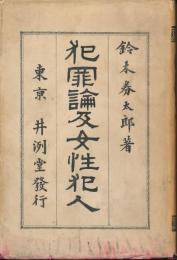 鈴木券太郎著
犯罪論及女性犯人
東京 井冽堂發行